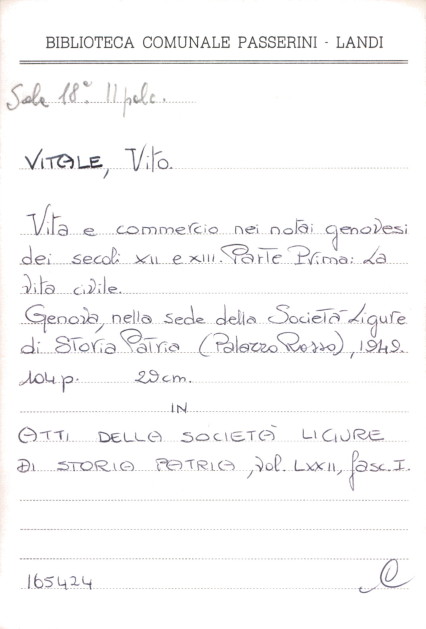 BIBLIOTECA COMUNALE PASSERINI - LANDI
Sala 18ª II palc.
VITALE, Vito.
Vita e commercio nei notai genovesi
dei secoli XII e XIII. Parte Prima: La
vita civile.
Genova, nella sede della Società Ligure
di Storia Patria (Palazzo Rosso), 1949.
104 p. 29 cm.
IN
ATTI DELLA SOCIETÀ LIGURE
DI STORIA PATRIA, vol. LXXII, fasc. I.
165424
C